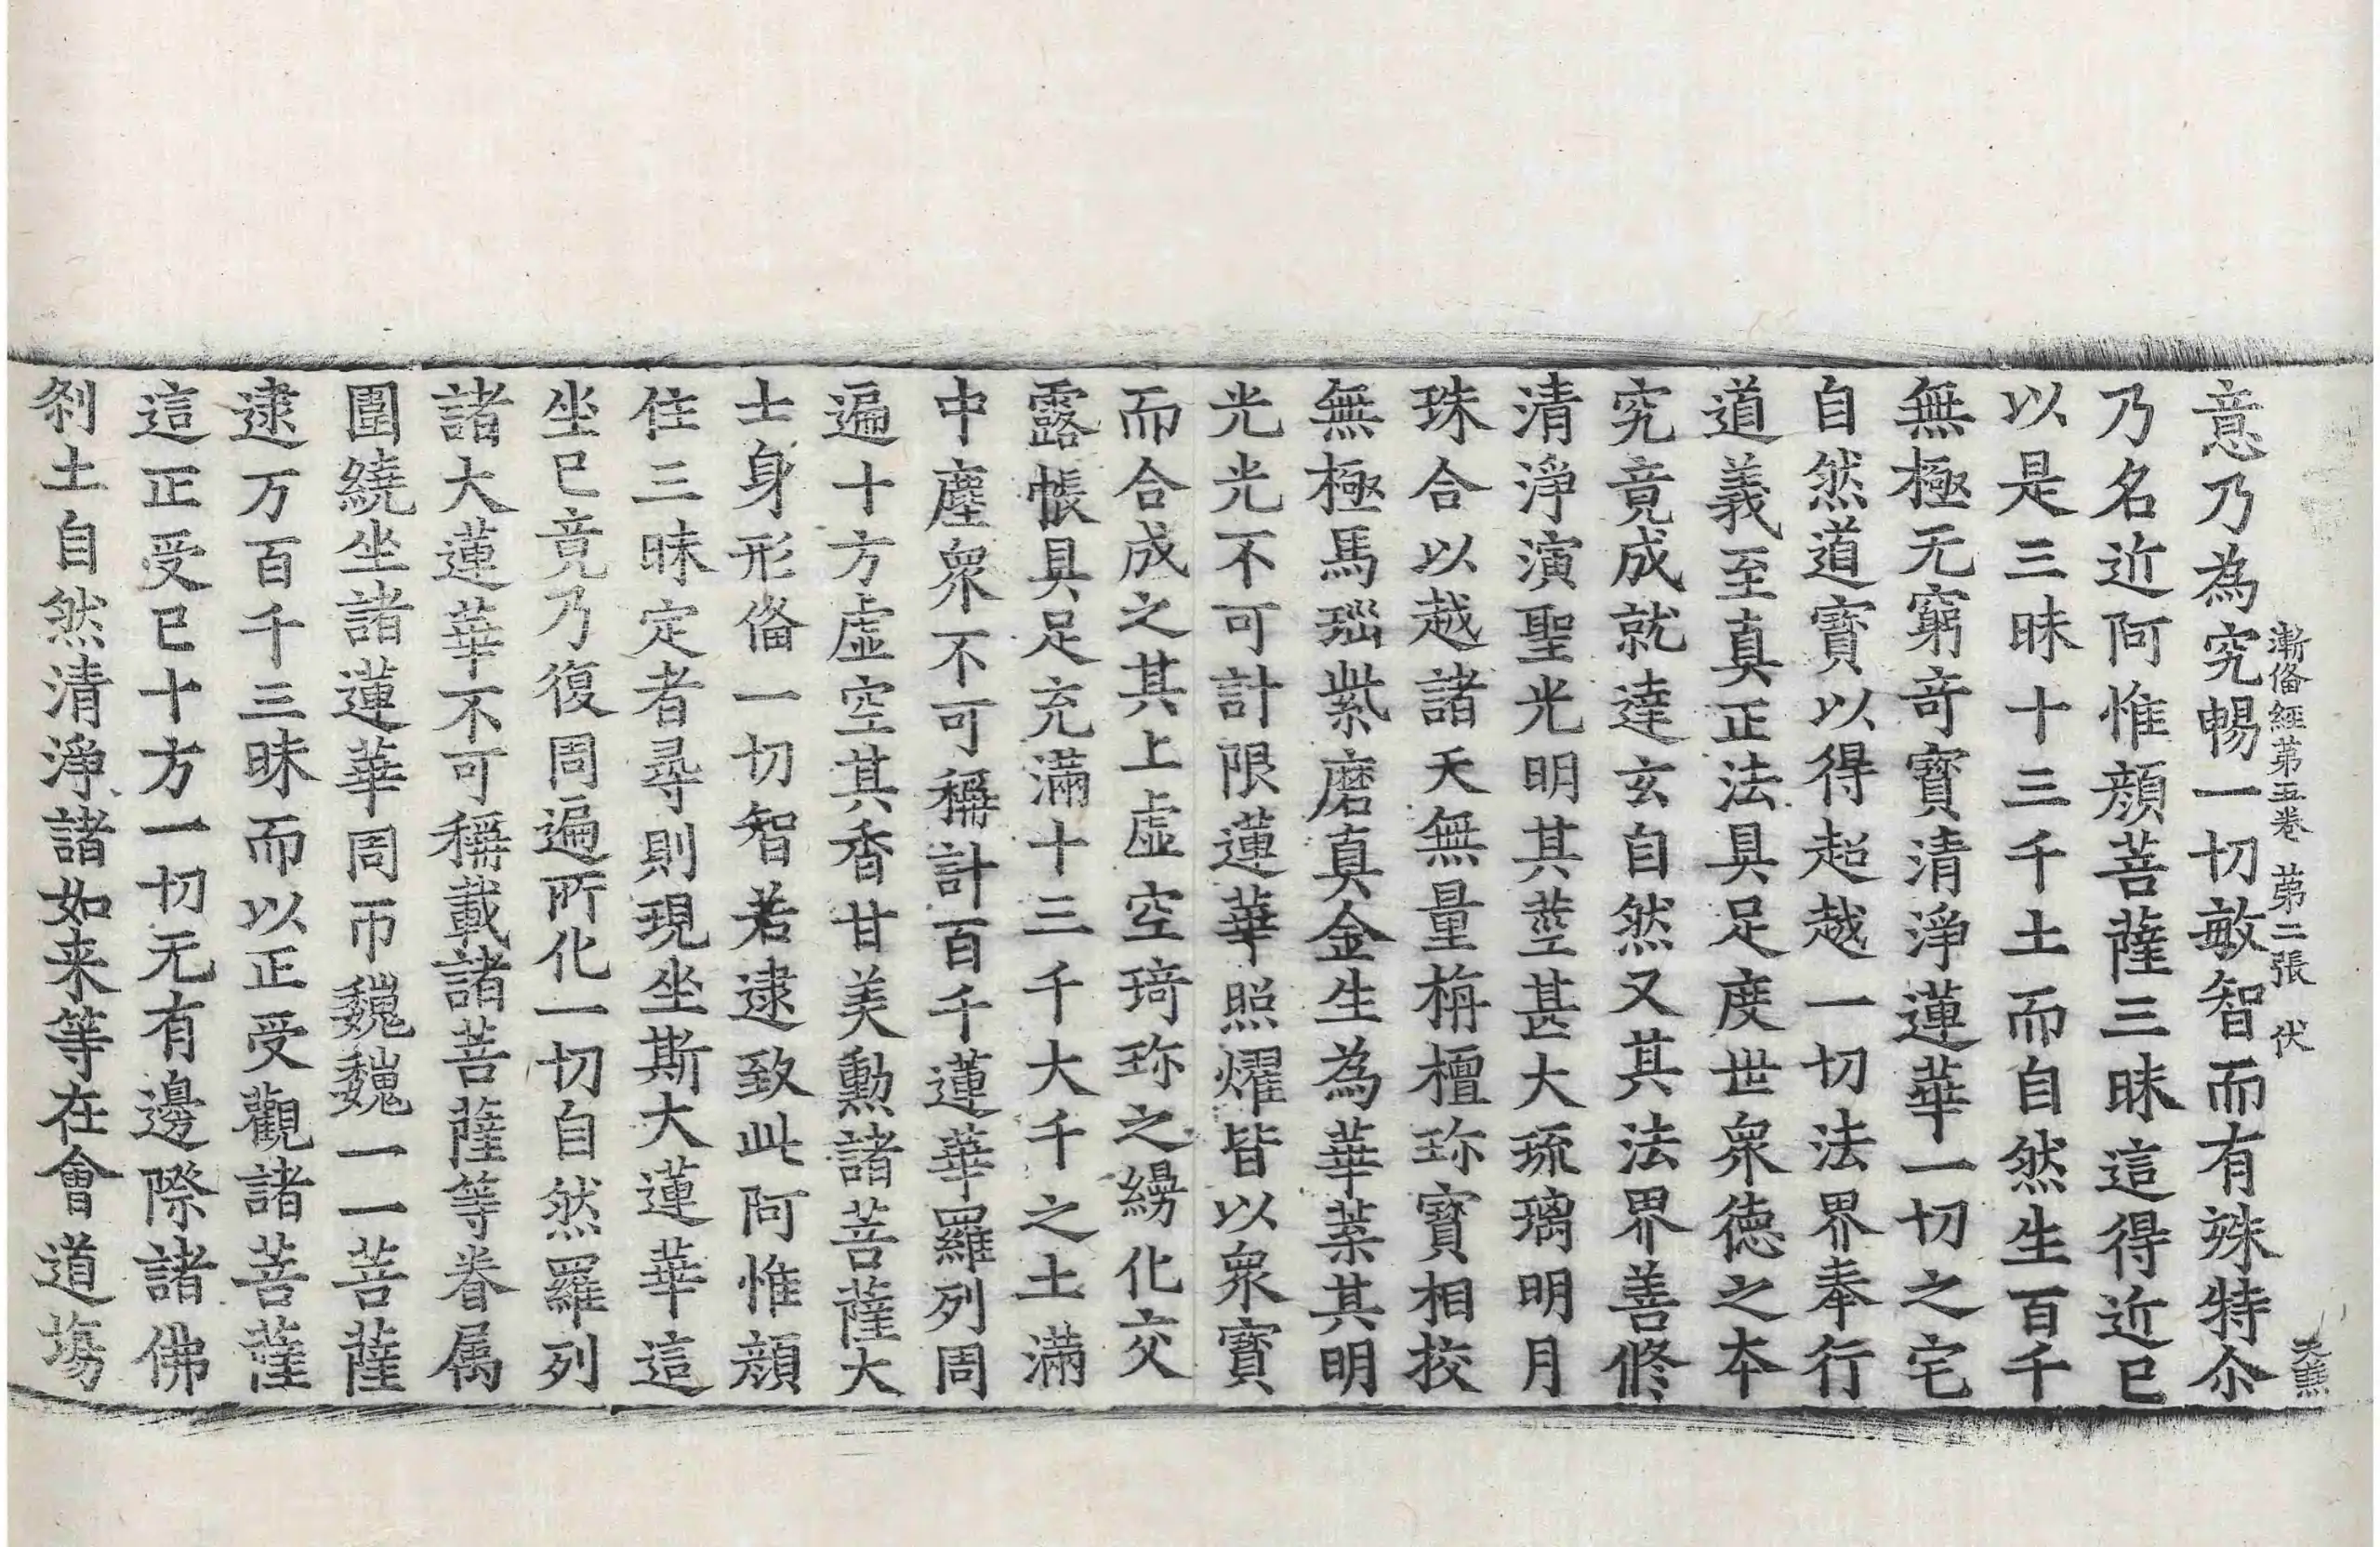 漸俻經苐五卷　苐二張　伏
意乃為究暢一切敏智而有殊特尒
乃名近阿惟顔菩薩三昧這得近已
以是三昧十三千土而自然生百千
無極无窮奇寶清淨蓮華一切之宅
自然道寶以得超越一切法界奉行
道義至真正法具足度世衆德之夲
究竟成就達玄自然又其法界善修
清淨演聖光明其莖甚大琉璃明月
珠合以越諸天無量栴檀珎寶相挍
無極馬瑙紫磨真金生為華葉其明
光光不可計限蓮華照燿皆以衆寶
而合成之其上虛空琦珎之縵化交
露帳具足充滿十三千大千之土滿
中塵衆不可稱計百千蓮華羅列周
遍十方虛空其香甘美勲諸菩薩大
士身形俻一切智若逮致此阿惟顔
住三昧定者尋則現坐斯大蓮華這
坐已竟乃復周遍所化一切自然羅列
諸大蓮華不可稱載諸菩薩等眷属
圍繞坐諸蓮華周帀巍巍一一菩薩
逮万百千三昧而以正受觀諸菩薩
這正受已十方一切无有邊際諸佛
刹土自然清淨諸如来等在會道場